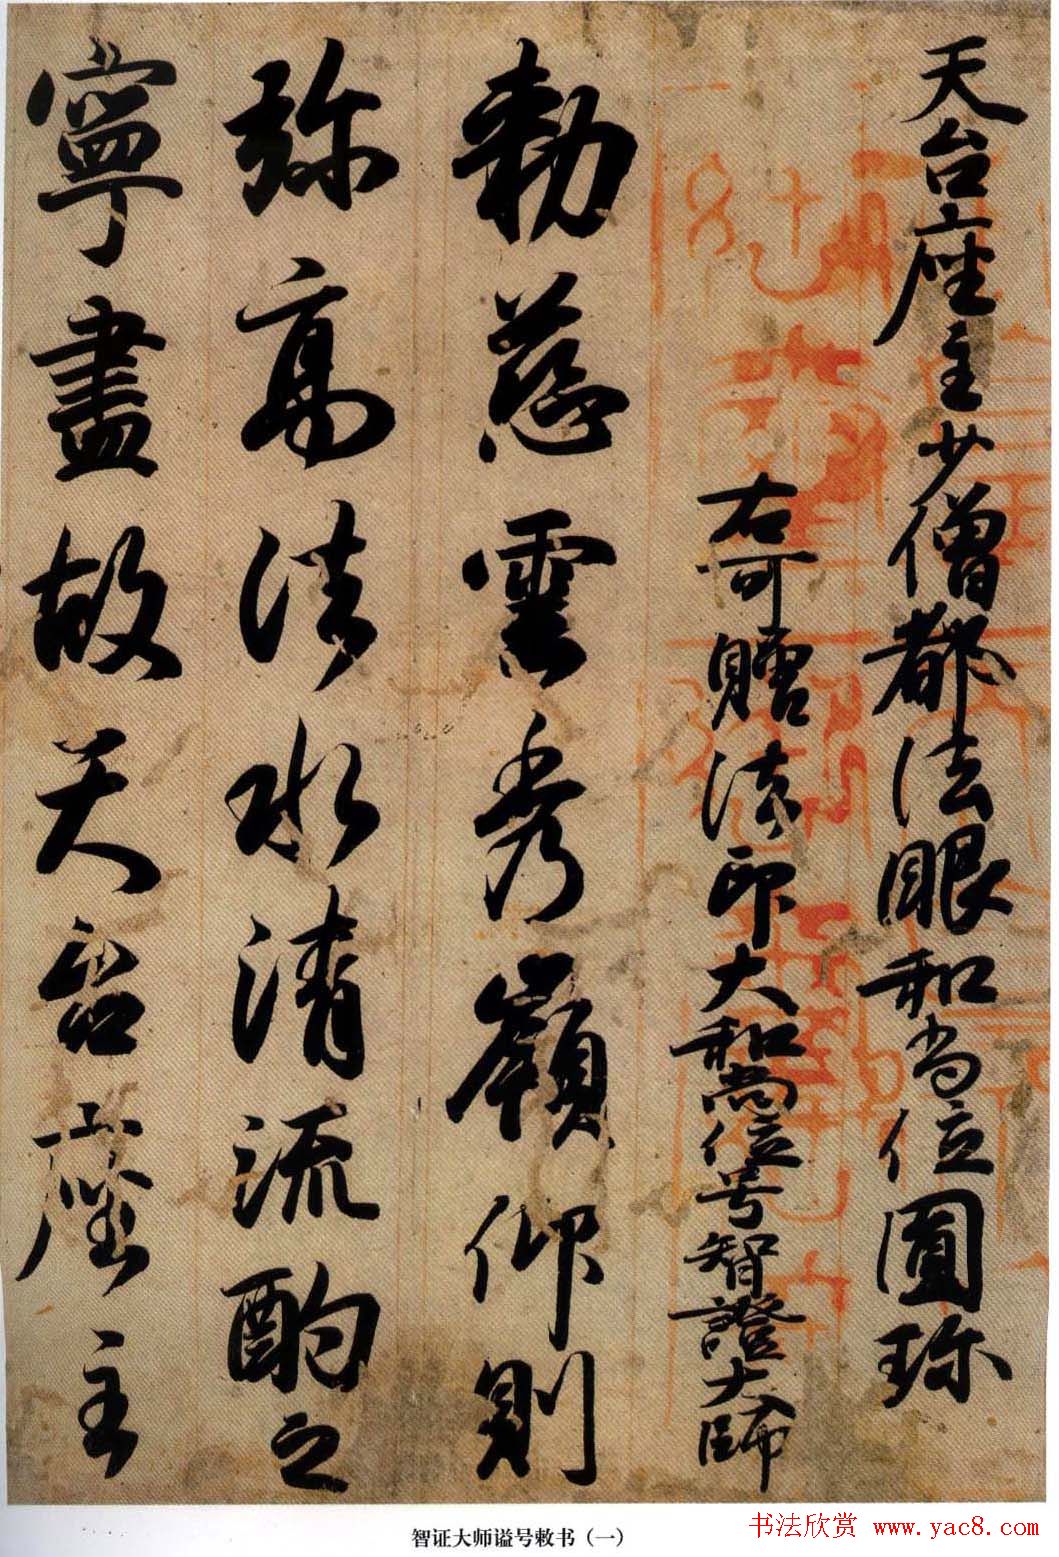 天台座主少僧都法眼和尚位圓珎
右可贈法印大和尚位号智證大師
勅慈雲秀嶺仰則
弥高法水清流酌之
寧盡故天台座主
智证大师谥号敕书（一）
书法欣赏 www.yac8.com